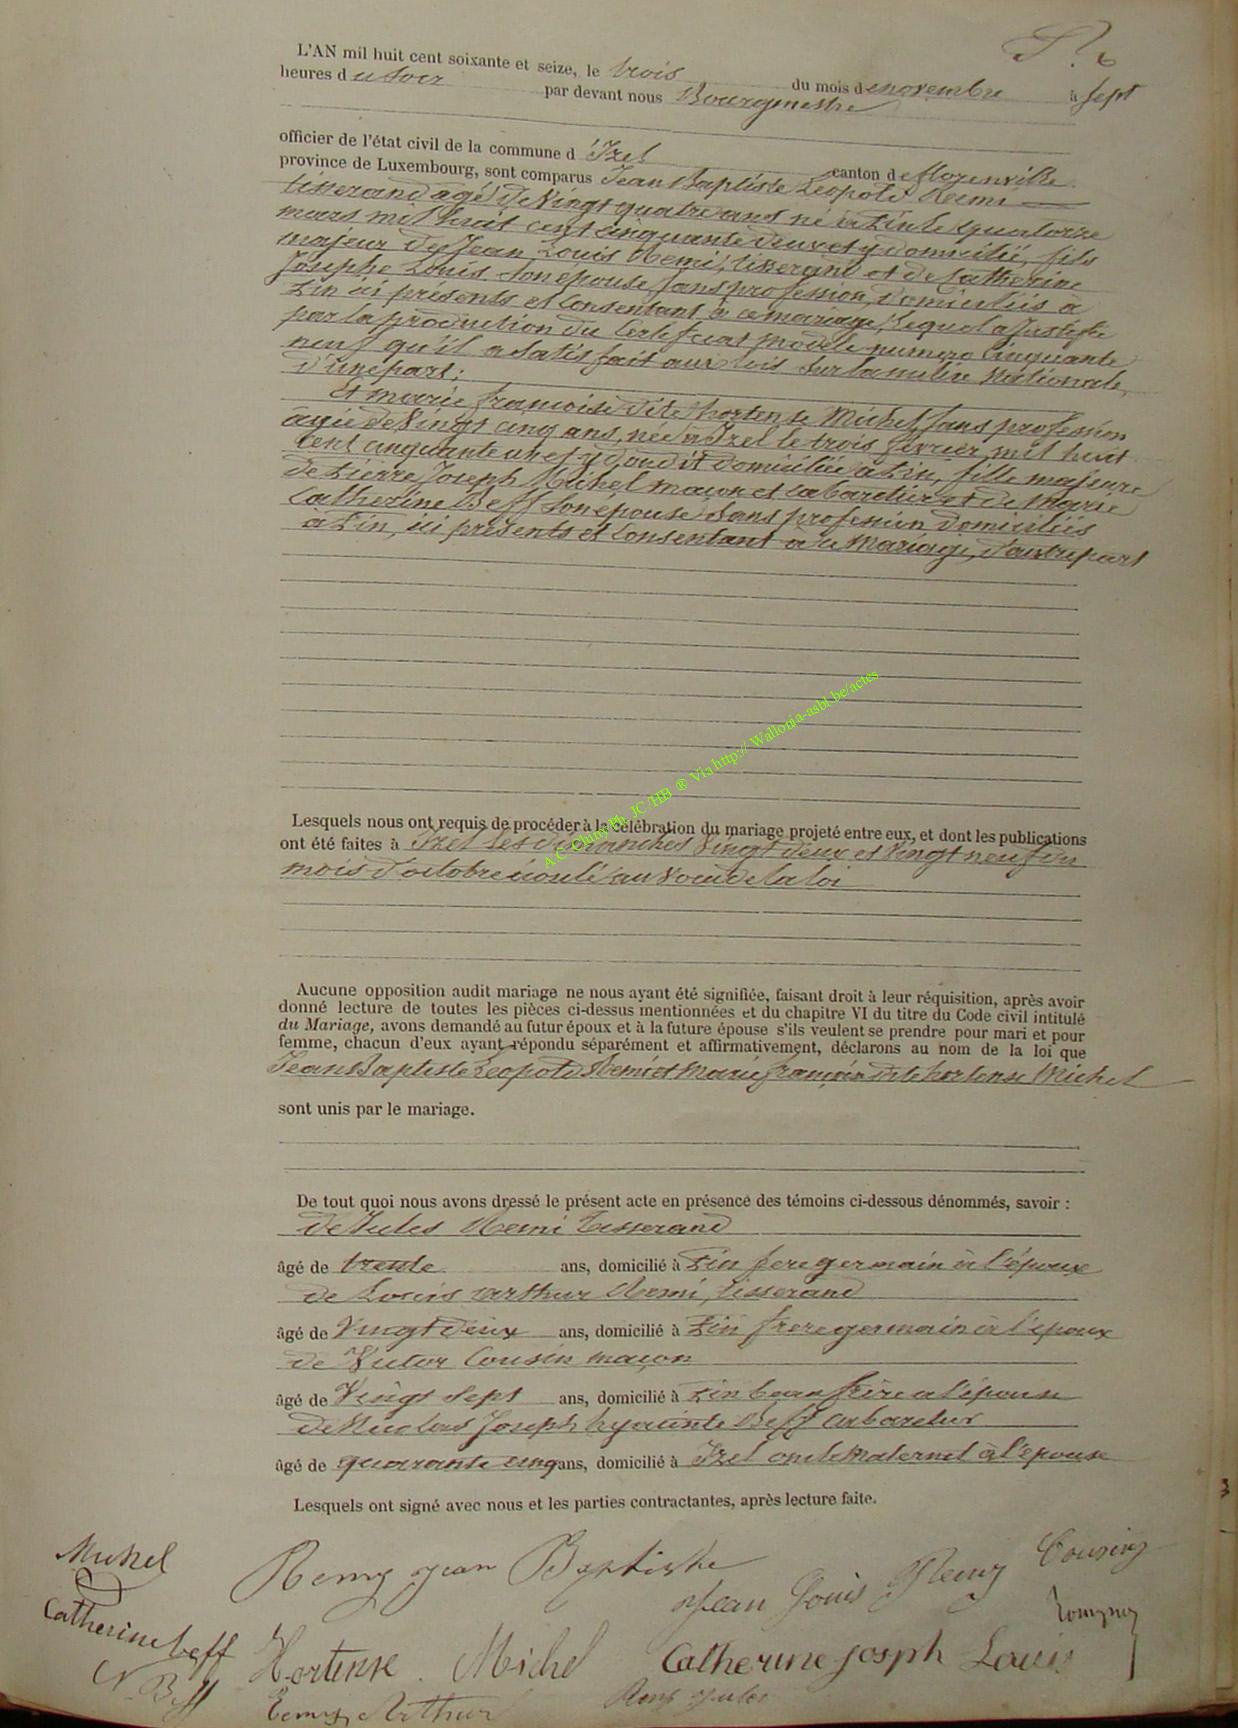 L'AN mil huit cent soixante et seize, le trois du mois de novembre à sept
heures du soir par devant nous Bourgmestre
officier de l'état civil de la commune d Izel canton de florenville
province de Luxembourg, sont comparus Jean Baptiste Léopold Remi
tisserand agé de Vingt quatre ans né à Pin le quatorze
mars mil huit cent cinquante deux et y domicilié, fils
majeur de Jean Louis Remi, tisserand et de Catherine
Josephe Louis son epouse, sans profession, domiciliés à
Pin ici présents et consentant à ce mariage, lequel a justifié
par la production du Certificat modèle numero Cinquante
neuf qu'il a satisfait aux lois sur la milice Nationale,
d'une part;
Et Marie françoise dite hortense Michel, sans profession
agée de Vingt cinq ans, née à Izel le trois fevrier mil huit
cent cinquante un et domiciliée à Pin, fille majeure
de Pierre Joseph Michel maçon et cabaretier et de Marie
Catherine Beff son épouse sans profession domiciliés
à Pin, ici présents et Consentant à ce Mariage, d'autre part
Lesquels nous ont requis de procéder à la célébration du mariage projeté entre eux, et dont les publications
ont été faites à Izel les dimanches Vingt deux et Vingt neuf du
mois d'octobre écoulé au voeu de la loi
A.C. Chiny Ph. JC /HB ® Via http:// Wallonia-asbl.be/actes
Aucune opposition audit mariage ne nous ayant été signifiée, faisant droit à leur réquisition, après avoir
donné lecture de toutes les pièces ci-dessus mentionnées et du chapitre VI du titre du Code civil intitulé
du Mariage, avons demandé au futur époux et à la future épouse s'ils veulent se prendre pour mari et pour
femme, chacun d'eux ayant répondu séparément et affirmativement, déclarons au nom de la loi que
Jean Baptiste Léopold Remi et Marie françoise dite hortense Michel
sont unis par le mariage.
De tout quoi nous avons dressé le présent acte en présence des témoins ci-dessous dénommés, savoir :
de Jules Remi Tisserand
âgé de trente ans, domicilié à Pin frere germain à l'époux
de Louis Arthur Remi, tisserand
âgé de Vingt deux ans, domicilié à Pin frere germain à l'époux
de Victor Cousin maçon
âgé de Vingt Sept ans, domicilié à Pin beau frère a l'épouse
de Nicolas Joseph hyacinte Beff cabaretier
âgé de quarante cinq ans, domicilié à Izel oncle Maternel à l'épouse
Lesquels ont signé avec nous et les parties contractantes, après lecture faite.
Michel Remy jean Baptiste Jean Louis Remy Cousin
Catherine beff Hortense Michel Catherine josph Louis
N. Beff Remy Arthur Remy jules